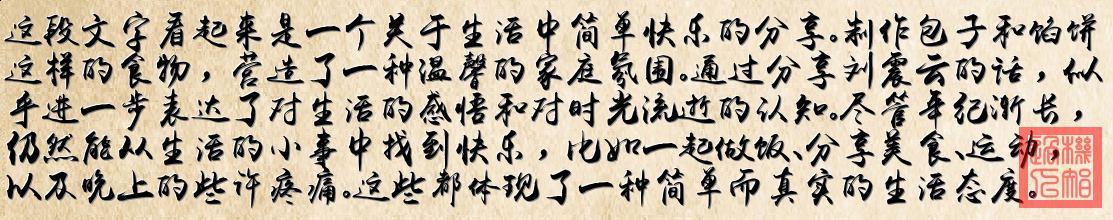 这段文字看起来是一个关于生活中简单快乐的分享。制作包子和馅饼
这样的食物，营造了一种温馨的家庭氛围。通过分享刘震云的话，似
乎进一步表达了对生活的感悟和对时光流逝的认知。尽管年纪渐长，
仍然能从生活的小事中找到快乐，比如一起做饭、分享美食、运动，
以及晚上的些许疼痛。这些都体现了一种简单而真实的生活态度。